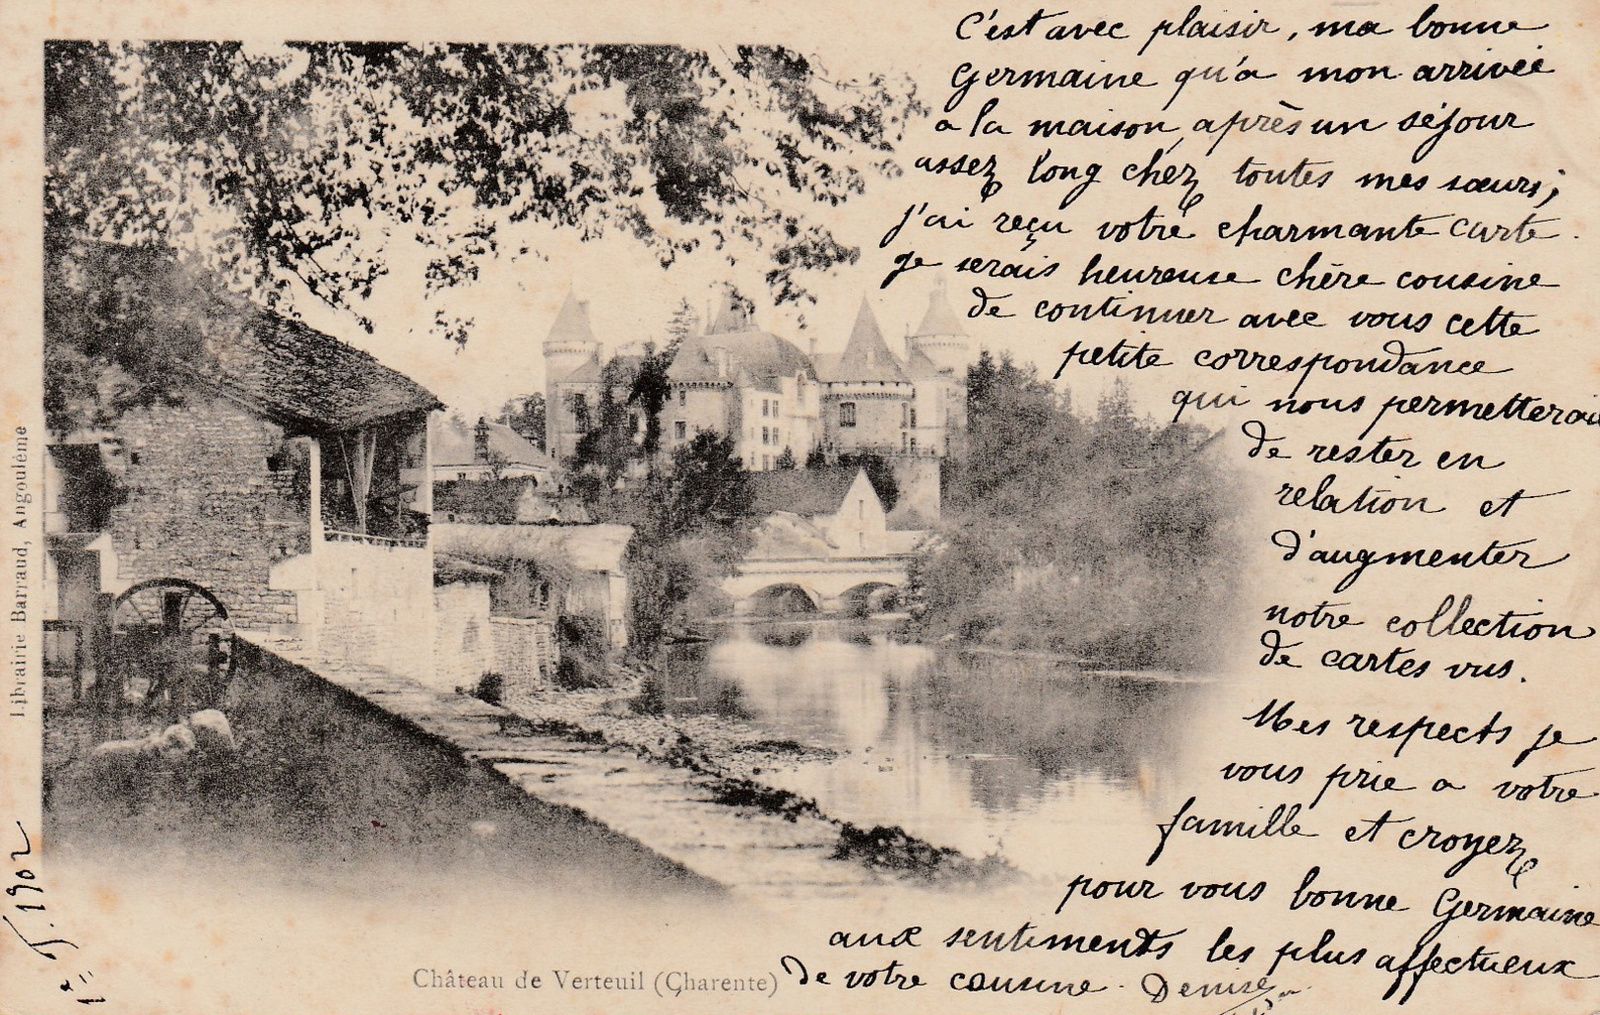 C'est avec plaisir, ma bonne
Germaine qu'a mon arrivée
a la maison, après un séjour
assez long chez toutes mes sœurs;
j'ai reçu votre charmante carte.
Je serais heureuse chère cousine
de continuer avec vous cette
petite correspondance
qui nous permetterai
de rester en
relation et
d'augmenter
notre collection
de cartes vus.
Mes respects je
vous prie a votre
famille et croyez
pour vous bonne Germaine
aux sentiments les plus affectueux
de votre cousine. Denise
Château de Verteuil (Charente)
Librairie Barraud, Angoulême
1902